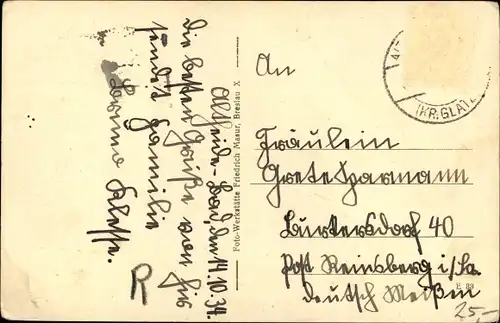 Altheide-Bad, den 14.10.34.
Die besten Grüße von hier
sendet Familie
Bruno Klesse.
R
Foto-Werkstätte Friedrich Masur, Breslau X
(KR. GLATZ
An
Fräulein
Grete Harmann
Burkersdorf 40
Post Reinsberg i/Sa.
deutsch Meißen
25,-